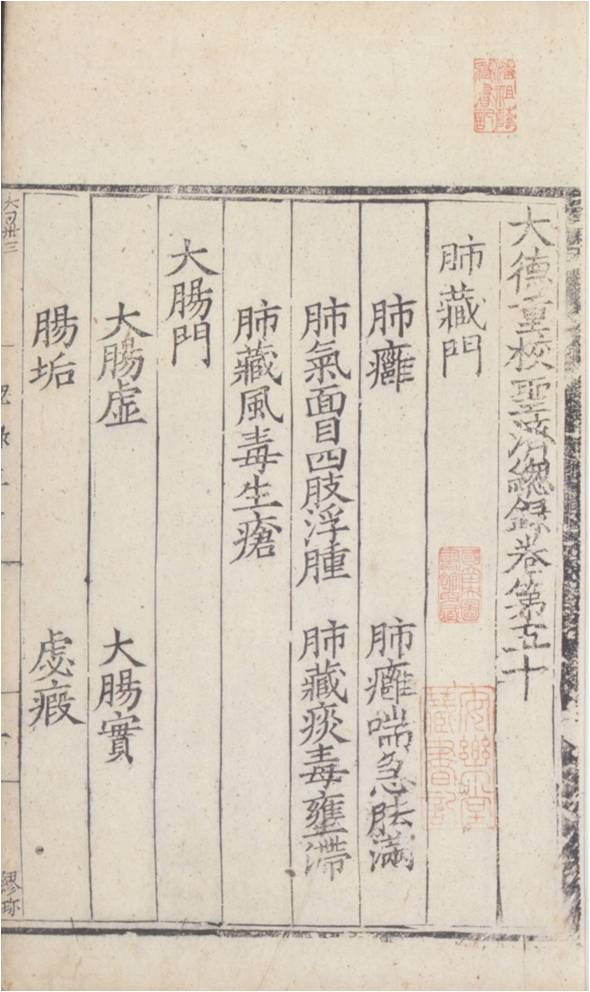 大德重校聖濟總錄卷第五十
肺藏門
肺癰　肺癰喘急胠滿
肺氣面目四肢浮腫　肺藏痰毒壅滯
肺藏風毒生瘡
大腸門
大腸虛　大腸實
腸垢　虙瘕